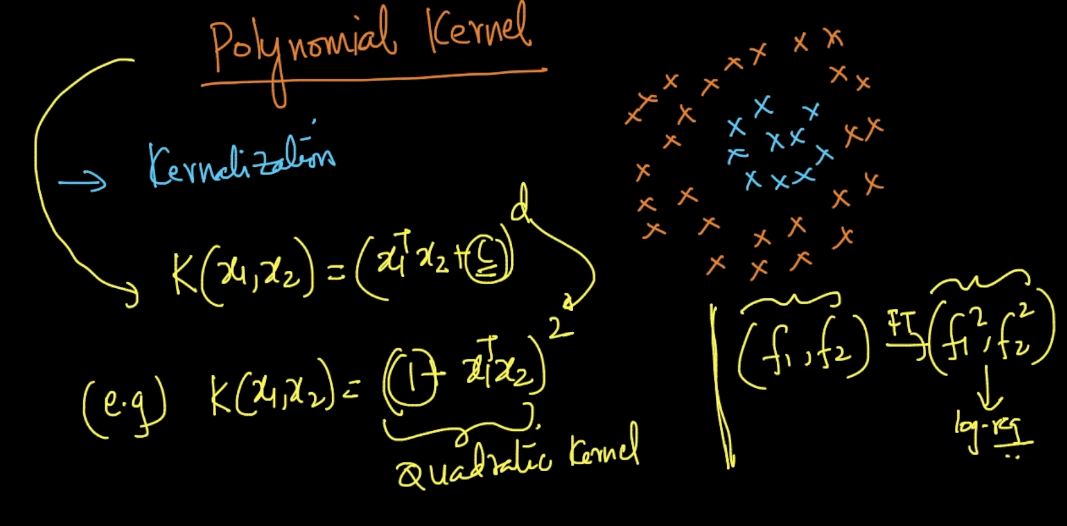 Polynomial Kernel
→ Kernelization
K(x₁,x₂) = (x₁ᵀx₂+c)ᵈ
(e.g) K(x₁,x₂) = (1+ x₁ᵀx₂)²
Quadratic Kernel
(f₁,f₂) FT→ (f₁²,f₂²)
log-reg